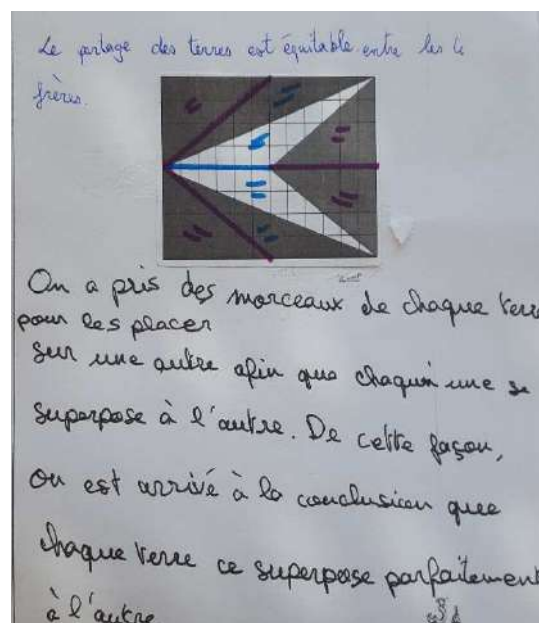 Le partage des terres est équitable entre les 4
frères.
On a pris des morceaux de chaque terre
pour les placer
sur une autre afin que chaqu'un une se
superpose à l'autre. De cette façon,
on est arrivé à la conclusion que
chaque terre ce superpose parfaitement
à l'autre